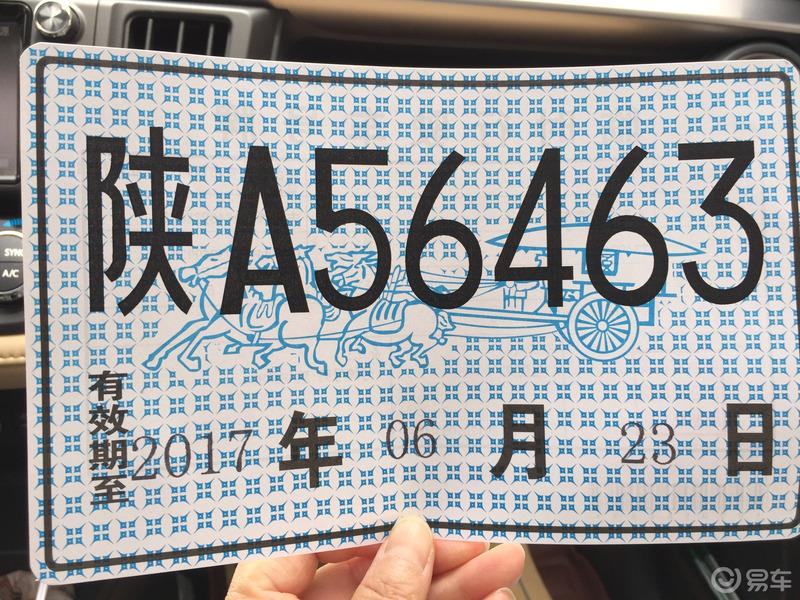 陕A56463
有效期至2017年06月23日
SYNC
A/C
易车